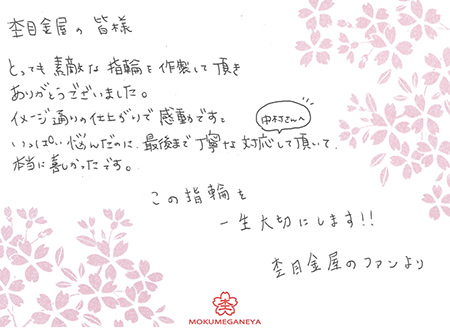 杢目金屋の皆様
とっても素敵な指輪を作製して頂き
ありがとうございました。
イメージ通りの仕上がりで感動です。
中村さんへ
いっぱい悩んだのに、最後まで丁寧な対応して頂いて
本当に喜しかったです。
この指輪を
一生大切にします!!
杢目金屋のファンより
杢
MOKUMEGANEYA